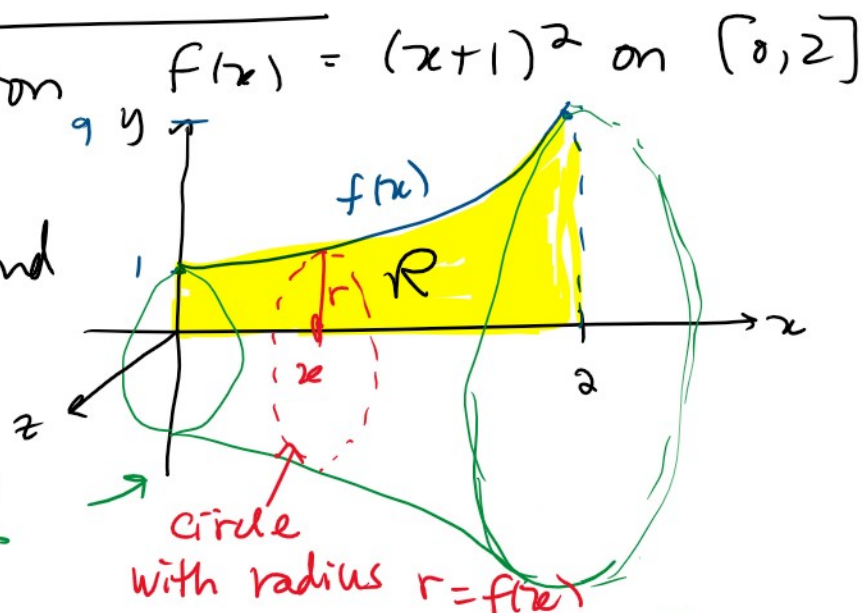 on f(x) = (x+1)² on [0,2]
9 y
f(x)
nd 1 R
r
x
x
2
z
circle
with radius r = f(x)